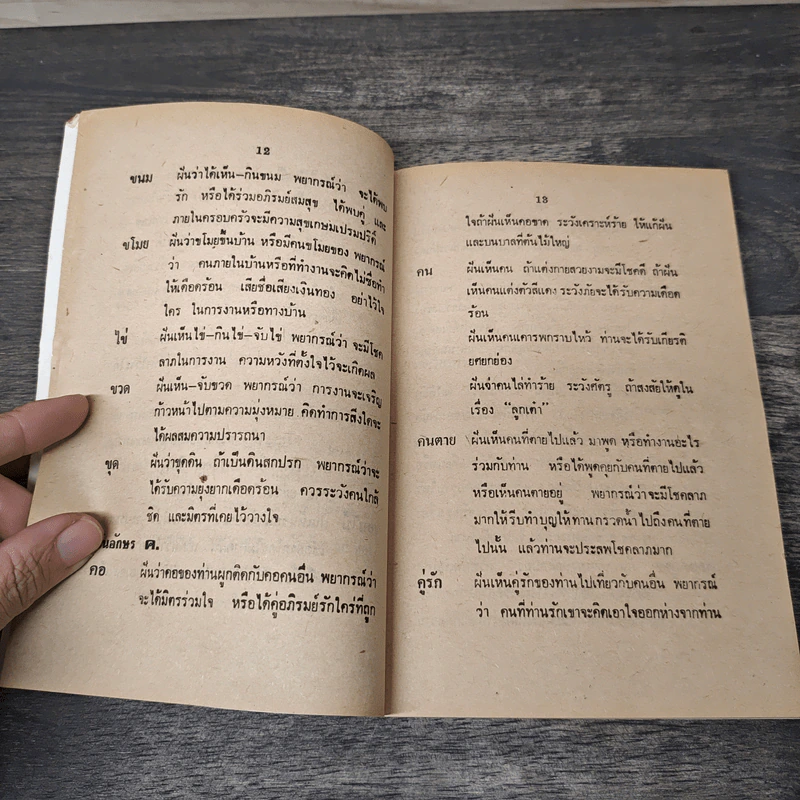 12
ขนม ฝันว่าได้เห็น-กินขนม พยากรณ์ว่า จะได้พบ
รัก หรือได้ร่วมอภิรมย์สมสุข ได้พบคู่ และ
ภายในครอบครัวจะมีความสุขเกษมเปรมปรีดิ์
ขโมย ฝันว่าขโมยขึ้นบ้าน หรือมีคนขโมยของ พยากรณ์
ว่า คนภายในบ้านหรือที่ทำงานจะคิดไม่ซื่อทำ
ให้เดือดร้อน เสียชื่อเสียงเงินทอง อย่าไว้ใจ
ใคร ในการงานหรือทางบ้าน
ไข่ ฝันเห็นไข่-กินไข่-จับไข่ พยากรณ์ว่า จะมีโชค
ลาภในการงาน ความหวังที่ตั้งใจไว้จะเกิดผล
ขวด ฝันเห็น-จับขวด พยากรณ์ว่า การงานจะเจริญ
ก้าวหน้าไปตามความมุ่งหมาย คิดทำการสิ่งใดจะ
ได้ผลสมความปรารถนา
ขุด ฝันว่าขุดดิน ถ้าเป็นดินสกปรก พยากรณ์ว่าจะ
ได้รับความยุ่งยากเดือดร้อน ควรระวังคนใกล้
ชิด และมิตรที่เคยไว้วางใจ
นอักษร ค.
คอ ฝันว่าคอของท่านผูกติดกับคอคนอื่น พยากรณ์ว่า
จะได้มิตรร่วมใจ หรือได้คู่อภิรมย์รักใคร่ที่ถูก
13
ใจถ้าฝันเห็นคอขาด ระวังเคราะห์ร้าย ให้แก้ฝัน
และบนบาลที่ต้นไม้ใหญ่
คน ฝันเห็นคน ถ้าแต่งกายสวยงามจะมีโชคดี ถ้าฝัน
เห็นคนแต่งตัวสีแดง ระวังภัยจะได้รับความเดือด
ร้อน
ฝันเห็นคนเคารพกราบไหว้ ท่านจะได้รับเกียรติ
ยศยกย่อง
ฝันว่าคนไล่ทำร้าย ระวังศัตรู ถ้าสงสัยให้ดูใน
เรื่อง “ลูกเต๋า”
คนตาย ฝันเห็นคนที่ตายไปแล้ว มาพูด หรือทำงานอะไร
ร่วมกับท่าน หรือได้พูดคุยกับคนที่ตายไปแล้ว
หรือเห็นคนตายอยู่ พยากรณ์ว่าจะมีโชคลาภ
มากให้รีบทำบุญให้ทานกรวดน้ำไปถึงคนที่ตาย
ไปนั้น แล้วท่านจะประสพโชคลาภมาก
คู่รัก ฝันเห็นคู่รักของท่านไปเที่ยวกับคนอื่น พยากรณ์
ว่า คนที่ท่านรักเขาจะคิดเอาใจออกห่างจากท่าน